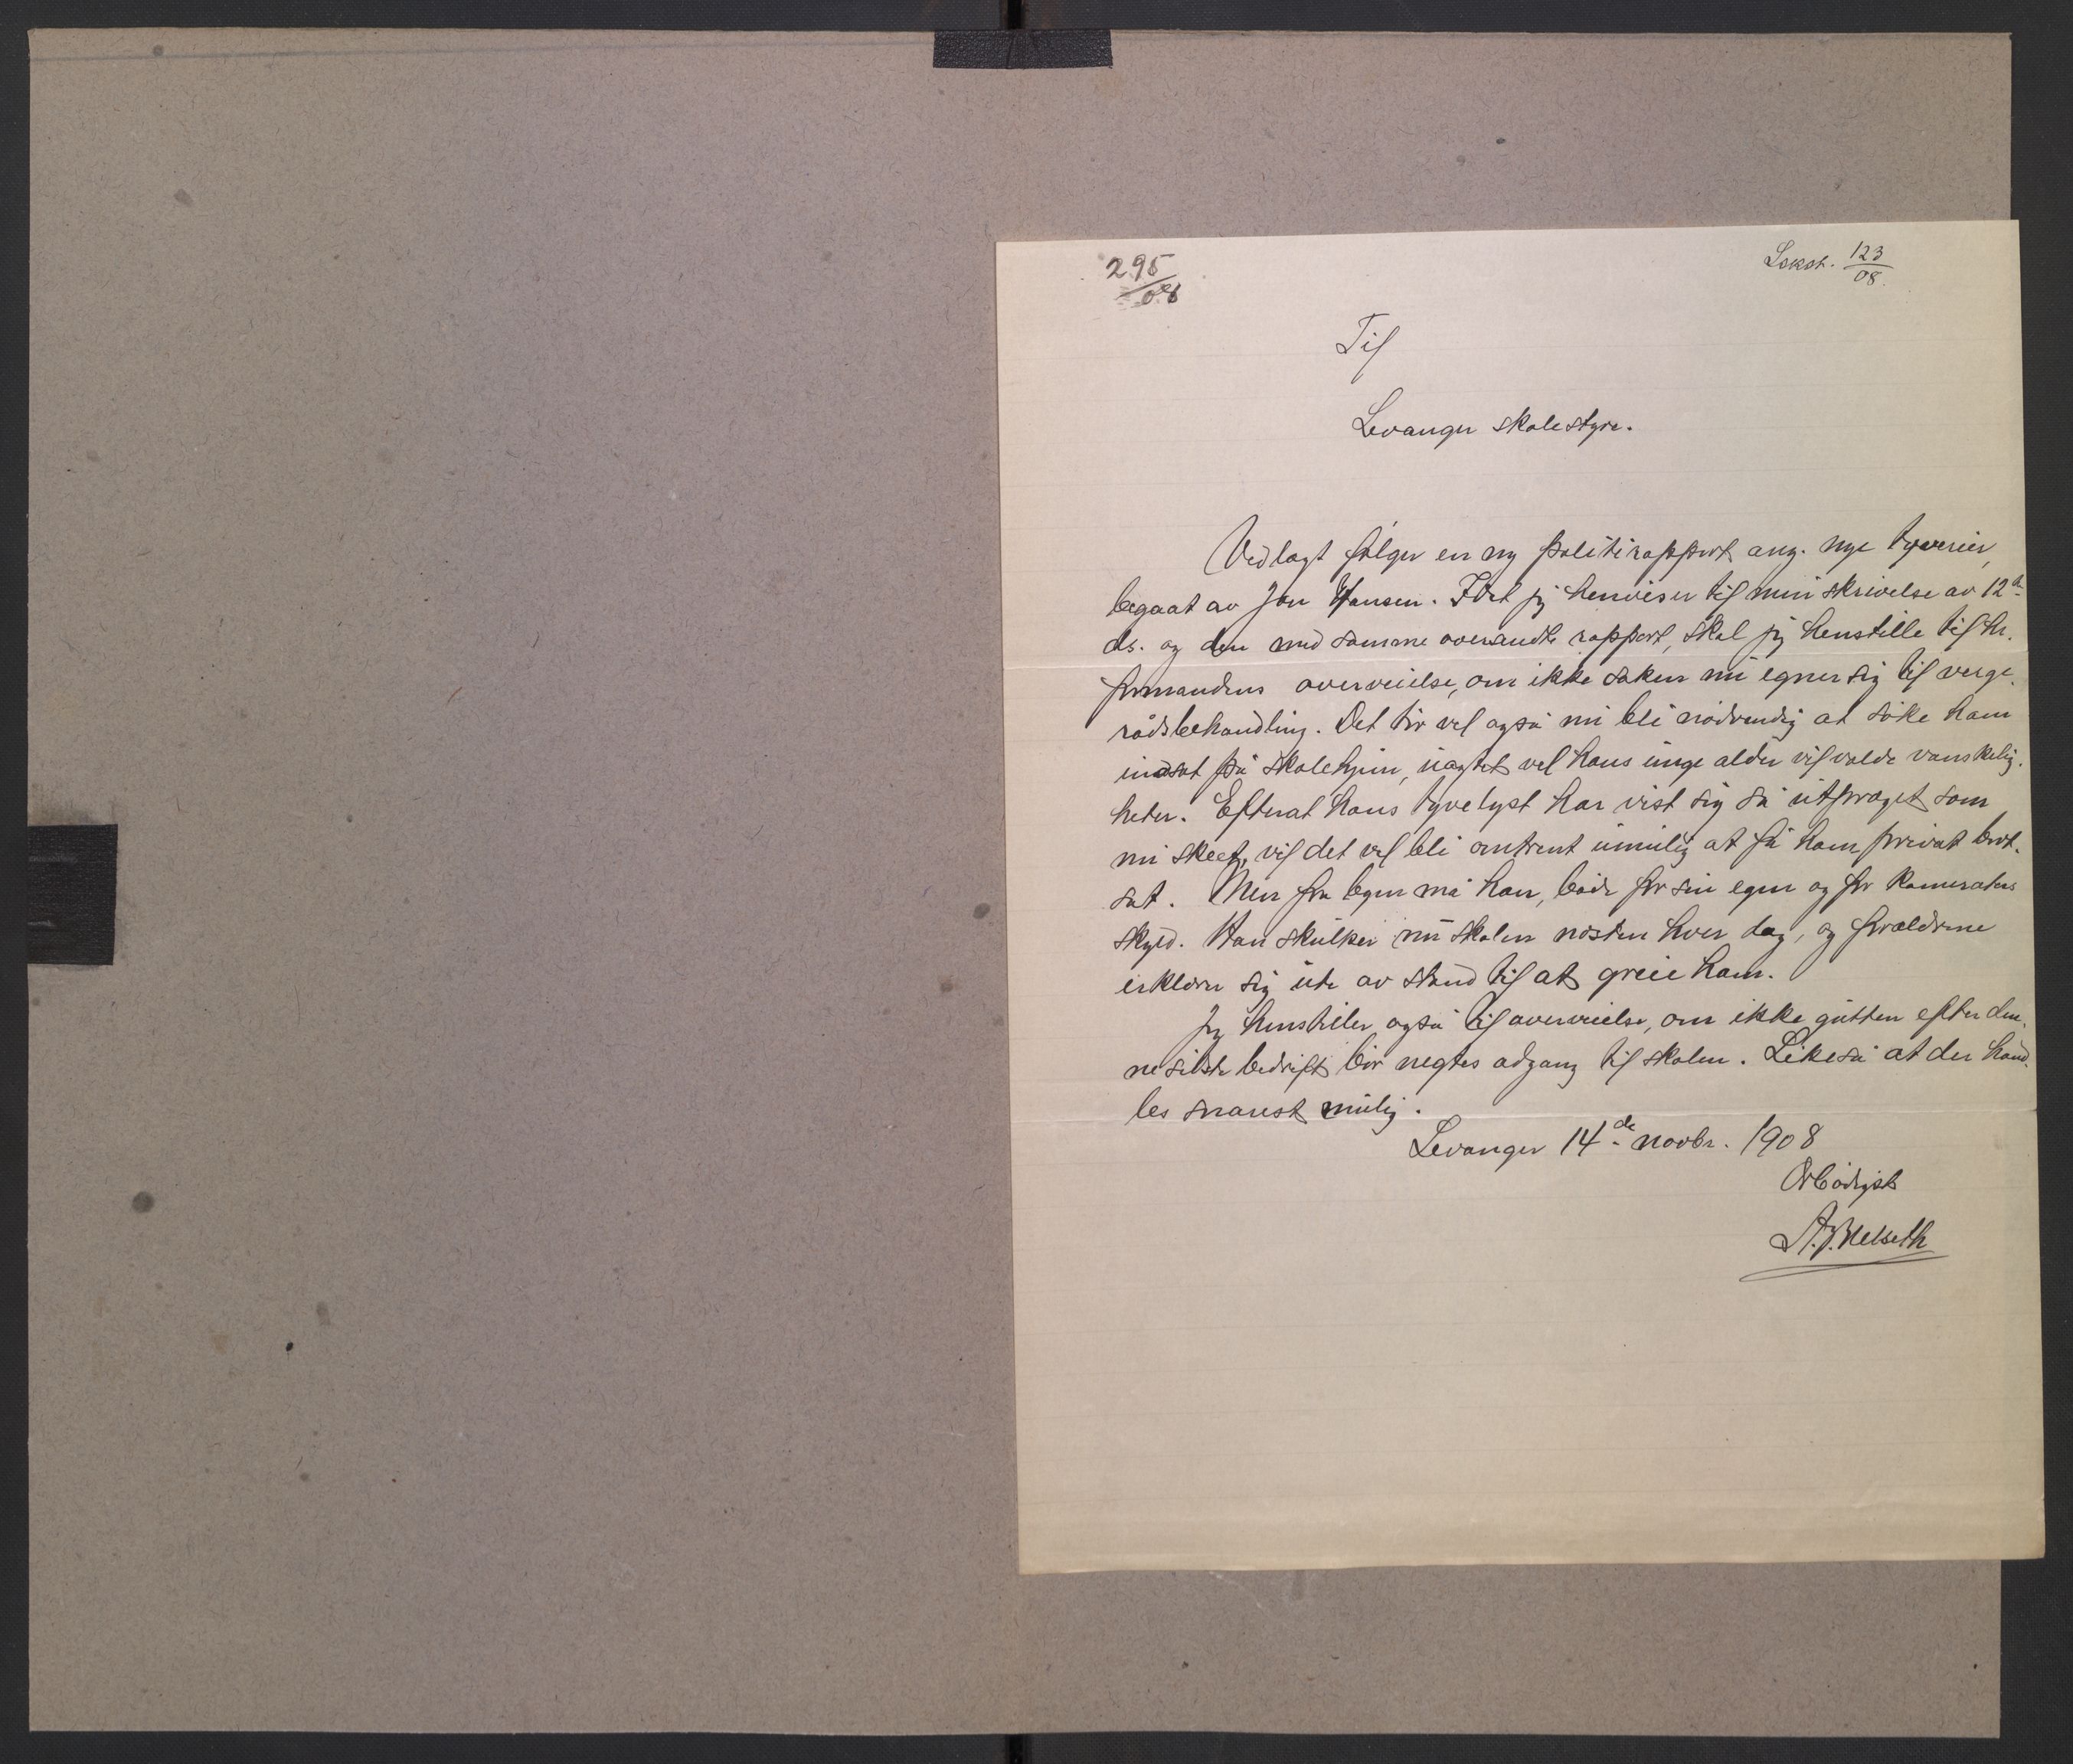 295/08
Lskst. 123/08.
Til
Levanger skolestyre.
Vedlagt følger en ny politirapport ang. nye tyverier,
begaat av Jon Hansen. Idet jeg henviser til min skrivelse av 12te
ds. og den med samme oversendte rapport, skal jeg henstille til hr.
formandens overveielse, om ikke saken nu egner sig til verge-
rådsbehandling. Det tør vel også nu bli nødvendig at søke ham
indsat på skolehjem, uagtet vel hans unge alder vil volde vanskelig-
heter. Efterat hans tyvelyst har vist sig så utpræget som
nu skeet, vil det vel bli omtrent umulig at få ham privat bort-
sat. Men fra byen må han, både for sin egen og for kameraters
skyld. Han skulker nu skolen næsten hver dag, og forældrene
erklærer sig ute av stand til at greie ham.
Jeg henstiller også til overveielse, om ikke gutten efter den-
ne sidste bedrift bør negtes adgang til skolen. Likeså at der hand-
les snarest mulig.
Levanger 14de novbr. 1908
Ærbødigst
A. J. Melseth